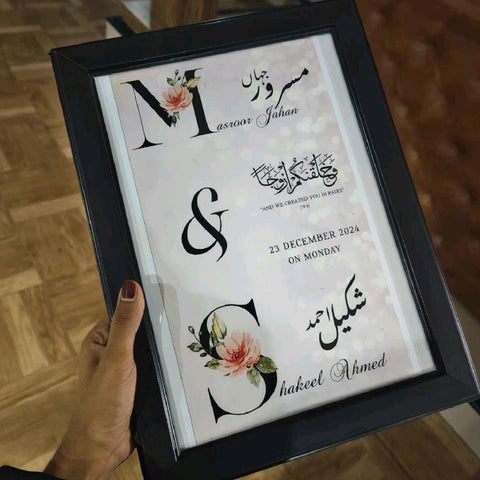 مسرور جہاں
Masroor Jahan
&
وخلقنكم ازوجا
"AND WE CREATED YOU IN PAIRS"
23 DECEMBER 2024
ON MONDAY
شکیل احمد
Shakeel Ahmed